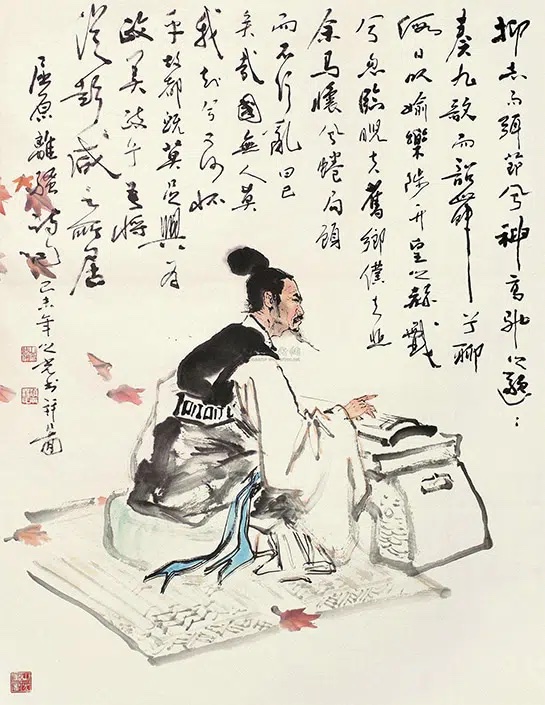 抑志而弭節兮神高馳之邈:
奏九歌而韶舞兮聊
假日以媮樂陟升皇之赫戲
兮忽臨睨夫舊鄉僕夫悲
余馬懷兮蜷局顧
而不行亂曰已
矣哉國無人莫
我知兮又何懷
乎故都既莫足與為
美政兮吾將
從彭咸之所居
屈原離騷詩句 己未年之光書